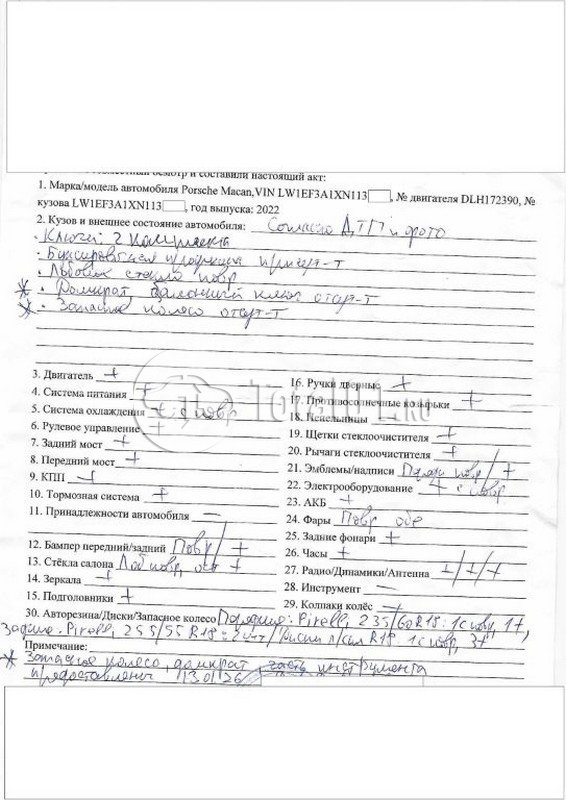 осмотр и составили настоящий акт:
1. Марка/модель автомобиля Porsche Macan,VIN LW1EF3A1XN113, № двигателя DLH172390, №
кузова LW1EF3A1XN113, год выпуска: 2022
2. Кузов и внешнее состояние автомобиля: Согласно ДТП и фото
· Ключи: 2 комплекта
· Буксировочная проушина
· Лобовое стекло повр
* · Домкрат, балонный ключ отсут-т
* · Запасное колесо отсут-т
3. Двигатель +
4. Система питания +
5. Система охлаждения + с повр
6. Рулевое управление +
7. Задний мост +
8. Передний мост +
9. КПП +
10. Тормозная система +
11. Принадлежности автомобиля —
12. Бампер передний/задний Повр / +
13. Стёкла салона Лоб повр, ост +
14. Зеркала +
15. Подголовники +
16. Ручки дверные +
17. Противосолнечные козырьки +
18. Пепельницы —
19. Щетки стеклоочистителя +
20. Рычаги стеклоочистителя +
21. Эмблемы/надписи повр / +
22. Электрооборудование + с повр
23. АКБ +
24. Фары Повр обе
25. Задние фонари +
26. Часы +
27. Радио/Динамики/Антенна +/+/+
28. Инструмент —
29. Колпаки колёс +
30. Авторезина/Диски/Запасное колесо Передние: Pirelli, 235/60R18: 1с повр, 1+,
Задние: Pirelli, 255/55 R18: 2 шт / Диски R18 1с повр, 3+
Примечание:
* Запасное колесо, домкрат, часть инструмента
предоставлены 13.01.26
TOTAL01.RU